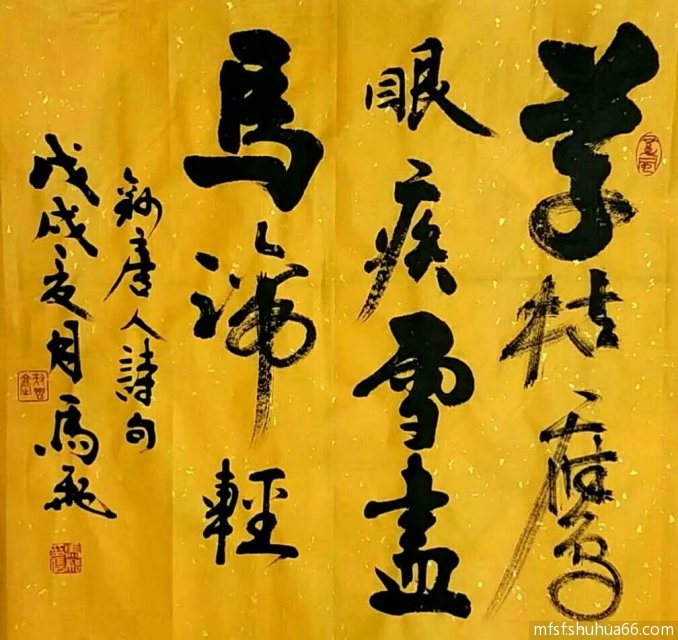 草枯鷹
眼疾雪盡
馬蹄輕
錄唐人詩句
戊戌夏月馬飛
mfsfshuhua66.com